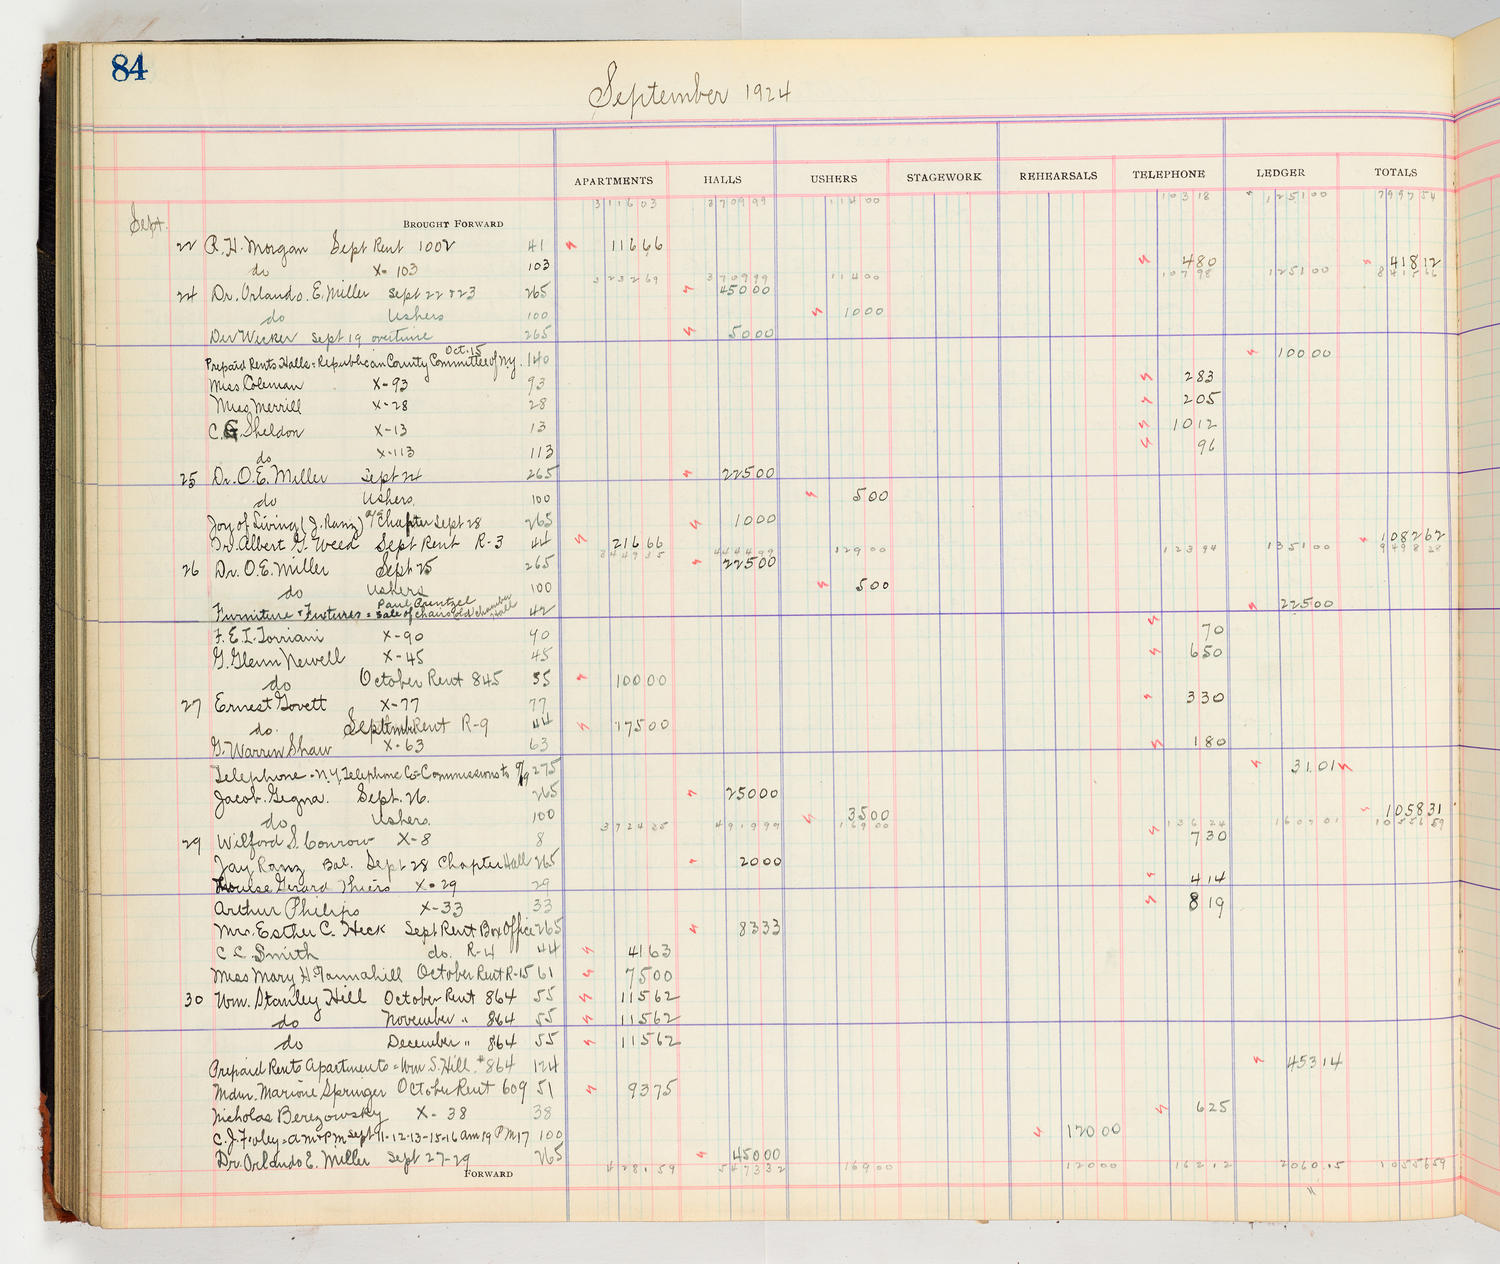 84
September 1924
APARTMENTS HALLS USHERS STAGEWORK REHEARSALS TELEPHONE LEDGER TOTALS
3116 03 3709 99 114 00 103 18 1251 00 7997 54
Sept. BROUGHT FORWARD
22 R. H. Morgan Sept Rent 1002 41 116 66
do X-103 103 4 80 418 12
3232 69 3709 99 114 00 107 98 1251 00 8415 66
24 Dr. Orlando. E. Miller Sept 22 & 23 265 450 00
do Ushers 100 10 00
Der Wecker Sept 19 overtime 265 50 00
Prepaid Rents Halls = Republican County Committee of N.Y. Oct. 15 140 100 00
Miss Coleman X-93 93 2 83
Miss Merrill X-28 28 2 05
C. G. Sheldon X-13 13 10 12
do X-113 113 96
25 Dr. O. E. Miller Sept 24 265 225 00
do Ushers 100 5 00
Joy of Living (J. Ranz) a/c Chapter Sept 28 265 10 00
Dr. Albert G. Weed Sept Rent R-3 44 216 66 1082 62
3449 35 4444 99 129 00 123 94 1351 00 9498 28
26 Dr. O. E. Miller Sept 25 265 225 00
do Ushers 100 5 00
Furniture & Fixtures = Sale of chairs old chamber hall Paul Prentzel 42 225 00
F. E. I. Torriani X-90 90 70
G. Glenn Newell X-45 45 6 50
do October Rent 845 55 100 00
27 Ernest Govett X-77 77 3 30
do. September Rent R-9 44 175 00
G. Warren Shaw X-63 63 1 80
Telephone - N.Y. Telephone Co - Commissions to 9/9 275 31.01
Jacob. Gegna. Sept. 26. 265 250 00
do. Ushers. 100 35 00 1058 31
3724 35 4919 99 169 00 136 24 1607 01 10556 59
29 Wilford S. Conrow X-8 8 7 30
Jay Ranz Bal. Sept 28 Chapter Hall 265 20 00
Louise Gerard Thiers X-29 29 4 14
Arthur Philips X-33 33 8 19
Mrs. Esther C. Heck Sept Rent Box Office 265 83 33
C C. Smith do. R-4 44 41 63
Miss Mary H. Tannahill October Rent R-15 61 75 00
30 Wm. Stanley Hill October Rent 864 55 115 62
do November " 864 55 115 62
do December " 864 55 115 62
Prepaid Rents Apartments = Wm S. Hill. #864 124 453 14
Mdm. Marione Springer October Rent 609 51 93 75
Nicholas Berezowsky X-38 38 6 25
C. J. Foley = am & Pm Sept 11-12-13-15-16 am 19 PM 17 100 120 00
Dr. Orlando E. Miller Sept 27-29 265 450 00
FORWARD 4281 59 5473 32 169 00 120 00 162 12 2060.15 10556 59